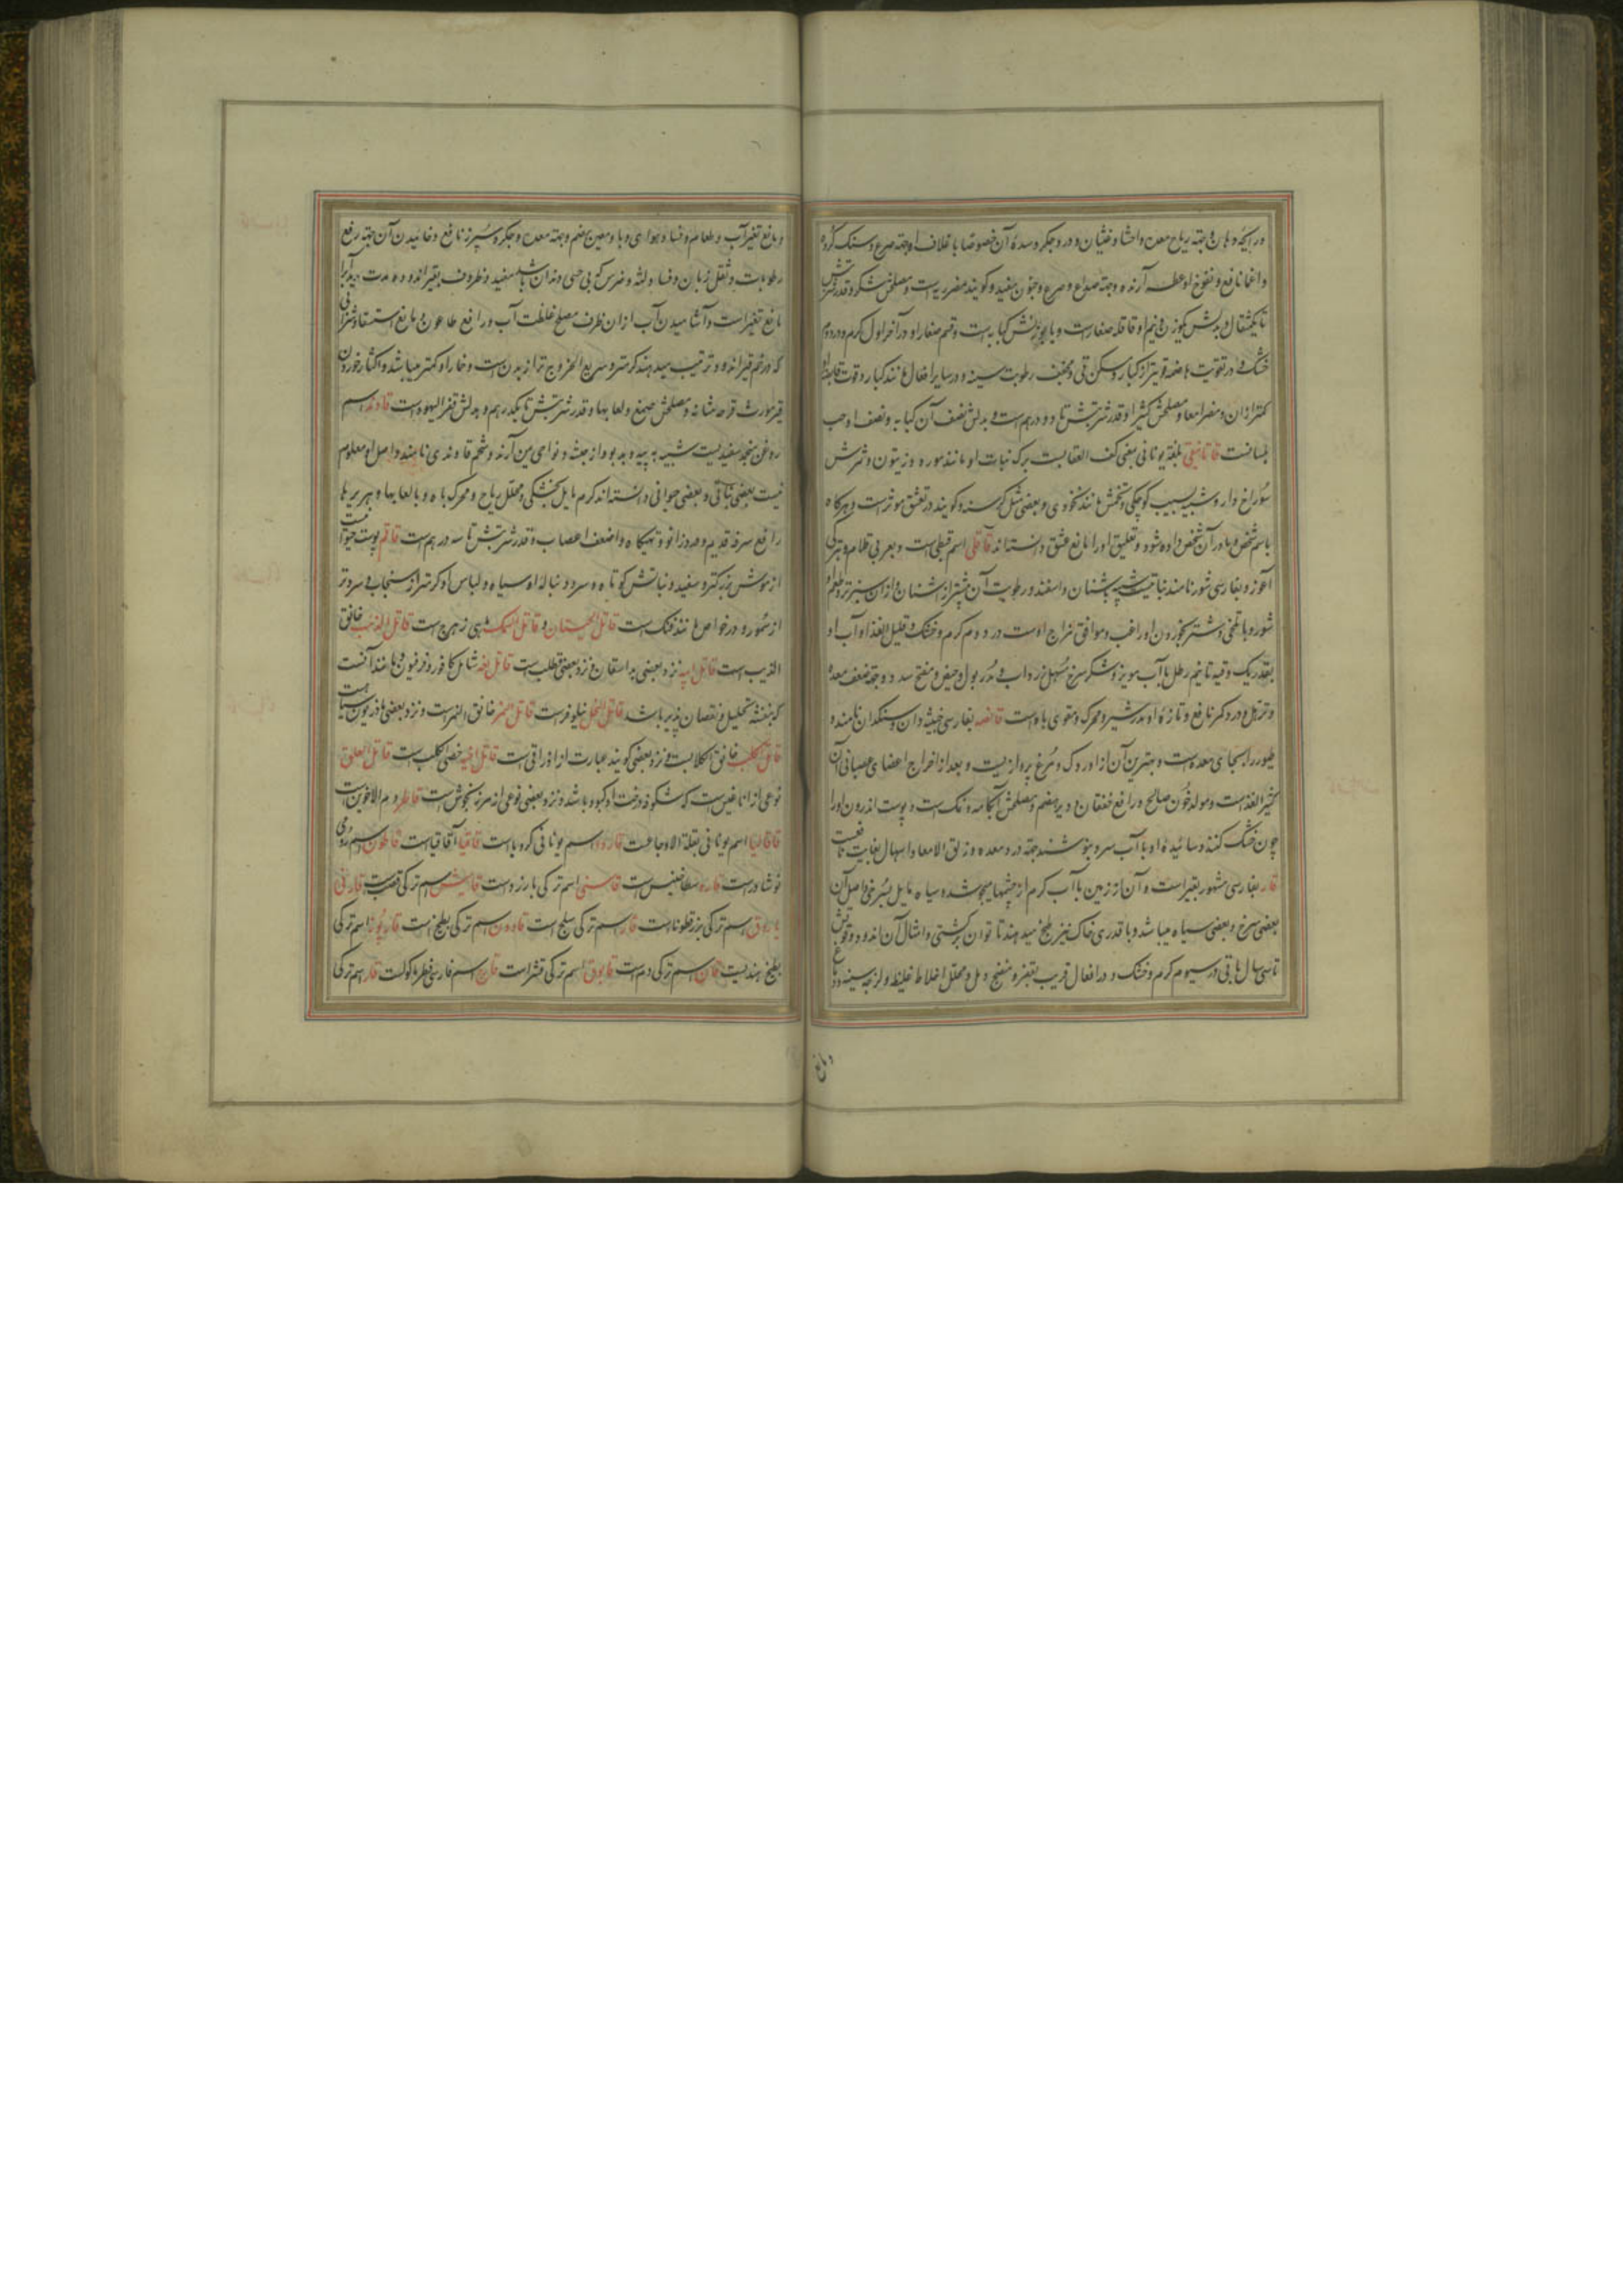 ورایحه دهان و جهة ریاح معده و احشا و غثیان و درد جکر و سده آن خصوصا با غلاف او جهة صرع و سنک کرده
و اغما نافع و نفوخ او عطسه آرنده و جهة صداع و صرع و جنون مفید و کویند مضر ریه است و مصلحش شکر و قدر شربتش
تا یکمثقال و بدلش یکوزن و نیم او قاقله صغار است و با بوزنش کبابه است و قسم صغار او در آخر اول کرم و در دوم
خشک و در تقویت هاضمه قویتر از کبار و مسکن قی و مجفف رطوبت سینه و در سایر افعال مانند کبار و قوت قابضه او
کمتر از آن و مضر امعا و مصلحش کثیرا و قدر شربتش تا دو درهم است و بدلش نصف آن کبابه و نصف او حب
بلسانست قاتانیقی بلغة یونانی بمعنی کف العقابست برک نبات او مانند مورد و زیتون و ثمرش
سوراخ دار و شبیه بسیب کوچکی و تخمش مانند نخودی و بعضی مثل کرسنه و کویند در تعشق موثر است و هرکاه
باسم شخص و مادر آن شخص داده شود و تعلیق او را مانع عشق دانسته اند قاقلی اسم قبطی است و بعربی قلام و بترکی
آغوز و بفارسی شور نامند نباتیست شبیه باشنان و اسفند و رطوبت آن بیشتر از اشنان و از آن سبزتر و طعم او
شور و با تلخی و شتر بخوردن او راغب و موافق مزاج اوست در دوم کرم و خشک و قلیل الغذا و آب او
بقدر یک وقیه تا نیم رطل با آب مویز و شکر سرخ مسهل زرداب و مدر بول و حیض و مفتح سدد و جهة ضعف معده
و ترهل و درد کمر نافع و تازه او مدر شیر و محرک و مقوی باه است قانصه بفارسی خیثه دان و سنکدان نامند و
طیور را بجای معده است و بهترین آن از اوردک و مرغ پروازیست و بعد از اخراج اعضای عصبانی آن
کثیر الغذا است و مولد خون صالح و رافع خفقان و دیر هضم و مصلحش آبکامه و نمک است و پوست اندرون او را
چون خشک کنند و سائیده او با آب سرد بنوشند جهة درد معده و زلق الامعا و اسهال بغایت نافعست
قار بفارسی مشهور بقیر است و آن از زمین با آب کرم از چشمها میجوشد سیاه مایل بسرخی و اصل آن
بعضی سرخ و بعضی سیاه میباشد و با قدری خاک نیز طبخ میدهند تا توان بر کشتی و امثال آن اندود و قوتش
تا سی سال باقی در سیوم کرم و خشک و در افعال قریب بقفر و منضج دمل و محلل اخلاط غلیظ و لزجه سینه و دماغ
و مانع
و مانع تغیر آب و طعام و فساد هوای وبا و معین هضم و جهة معده و جکر و سپرز نافع و خائیدن آن جهة رفع
رطوبات و ثقل زبان و فساد لثه و ضرس که بی حسی دندان باشد مفید و ظروف بقیر اندوده مدت
مانع تغیر است و آشامیدن آب از آن ظرف مصلح غلظت آب و رافع طاعون و مانع استسقا و شرابی
که در خم قیر اندود ترتیب میدهند کرمتر و سریع الخروج تر از بدن است و خمار او کمتر میباشد و اکثار خوردن
قیر مورث قرحه مثانه و مصلحش صمغ و لعابها و قدر شربتش تا یکدرهم و بدلش قفر الیهود است قاوند اسم
روغن منجمد سفیدیست شبیه به پیه و بدبو و از حبشه و نواحی یمن آرند و شحم قاوندی نامند و اصل او معلوم
نیست بعضی نباتی و بعضی حیوانی دانسته اند کرم مایل بخشکی و محلل ریاح و محرک باه و با لعابها و هریرها
رافع سرفه قدیم و درد زانو و تهیکاه و اضعف اعصاب و قدر شربتش تا سه درهم است قاقم پوست حیوانیست
از موش بزرکتر و سفید و دنباله اش کوتاه و سر دنباله او سیاه و لباس او کرمتر از سنجاب و سردتر
از سمور و در خواص مانند فنک است قاتل الحیتان و قاتل السمک ماهی زهرج است قاتل الذئب خانق
الذیب است قاتل ابیه نزد بعضی بداسقان و نزد بعضی قطلب است قاتل نفسه شامل کافور و فرفیون و مانند آنست
که بنفسه تحلیل و نقصان پذیر باشد قاتل النحل نیلوفر است قاتل النمر خانق النمر است و نزد بعضی ماذریون سیاهست
قاتل الکلب خانق الکلابست و نزد بعضی کویند عبارت از اذاراقی است قاتل اخیه خصی الکلب است قاتل العلق
نوعی از اناغلس است که شکوفه درخت او کبود باشد و نزد بعضی نوعی از مرزنجوش است قاطر دم الاخوین است
قاقالیا اسم یونانی بقلة الاوجاعست قاروا اسم یونانی کرویا است قاقیا آقاقیا است قاطون اسم رومی
نوشادر است قاره سطاخنیس است قاسنی اسم ترکی بارزد است قامیش اسم ترکی قصب است قارنی
یاروق اسم ترکی بزر قطونا است قار اسم ترکی ثلج است قاوون اسم ترکی بطیخ است قارپوز اسم ترکی
بطیخ هندیست قان اسم ترکی دم است قابوق اسم ترکی قشر است قارچ اسم فارسی فطر ماکولست قاز اسم ترکی